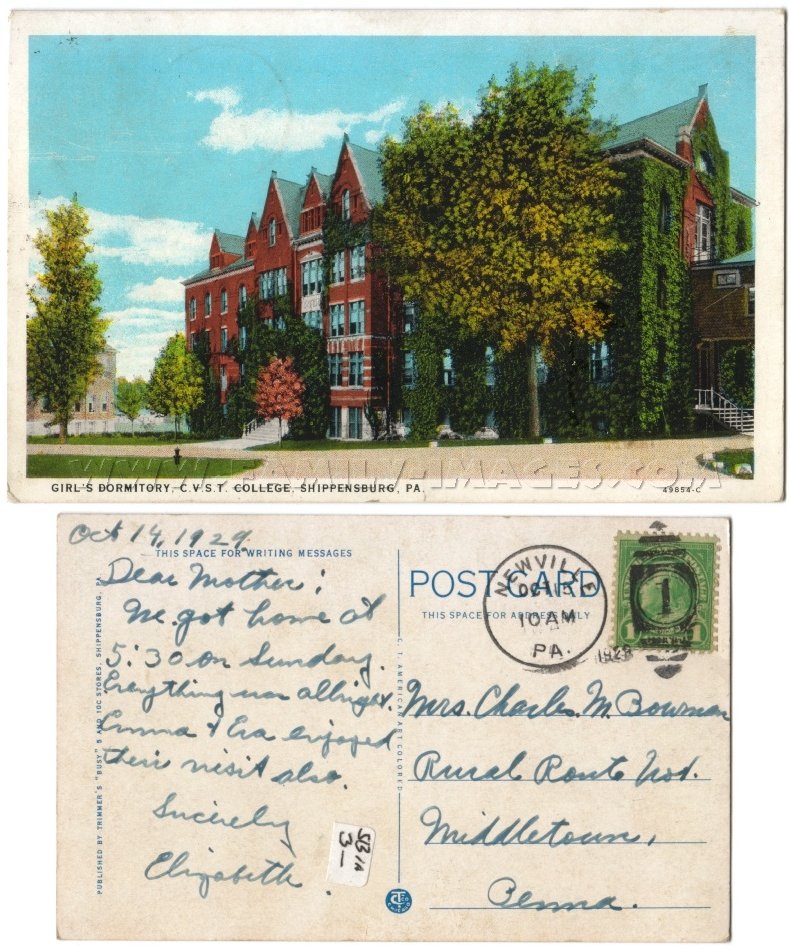 WWW.FAMILY-IMAGES.COM
GIRL'S DORMITORY, C.V.S.T. COLLEGE, SHIPPENSBURG, PA.
49854-C
Oct 14, 1929.
THIS SPACE FOR WRITING MESSAGES
Dear Mother:
We got home at
5:30 on Sunday.
Everything was allright.
Emma & Eva enjoyed
their visit also.
Sincirely
Elizabeth.
PUBLISHED BY TRIMMER'S "BUSY" 5 AND 10C STORES, SHIPPENSBURG, PA.
C. T. AMERICAN ART COLORED
POST CARD
THIS SPACE FOR ADDRESS ONLY
NEWVILLE
OCT 15
10 AM
PA.
1
Mrs. Charles M. Bowman
Rural Route No1.
Middletown,
Penna.
CHICAGO
3 —